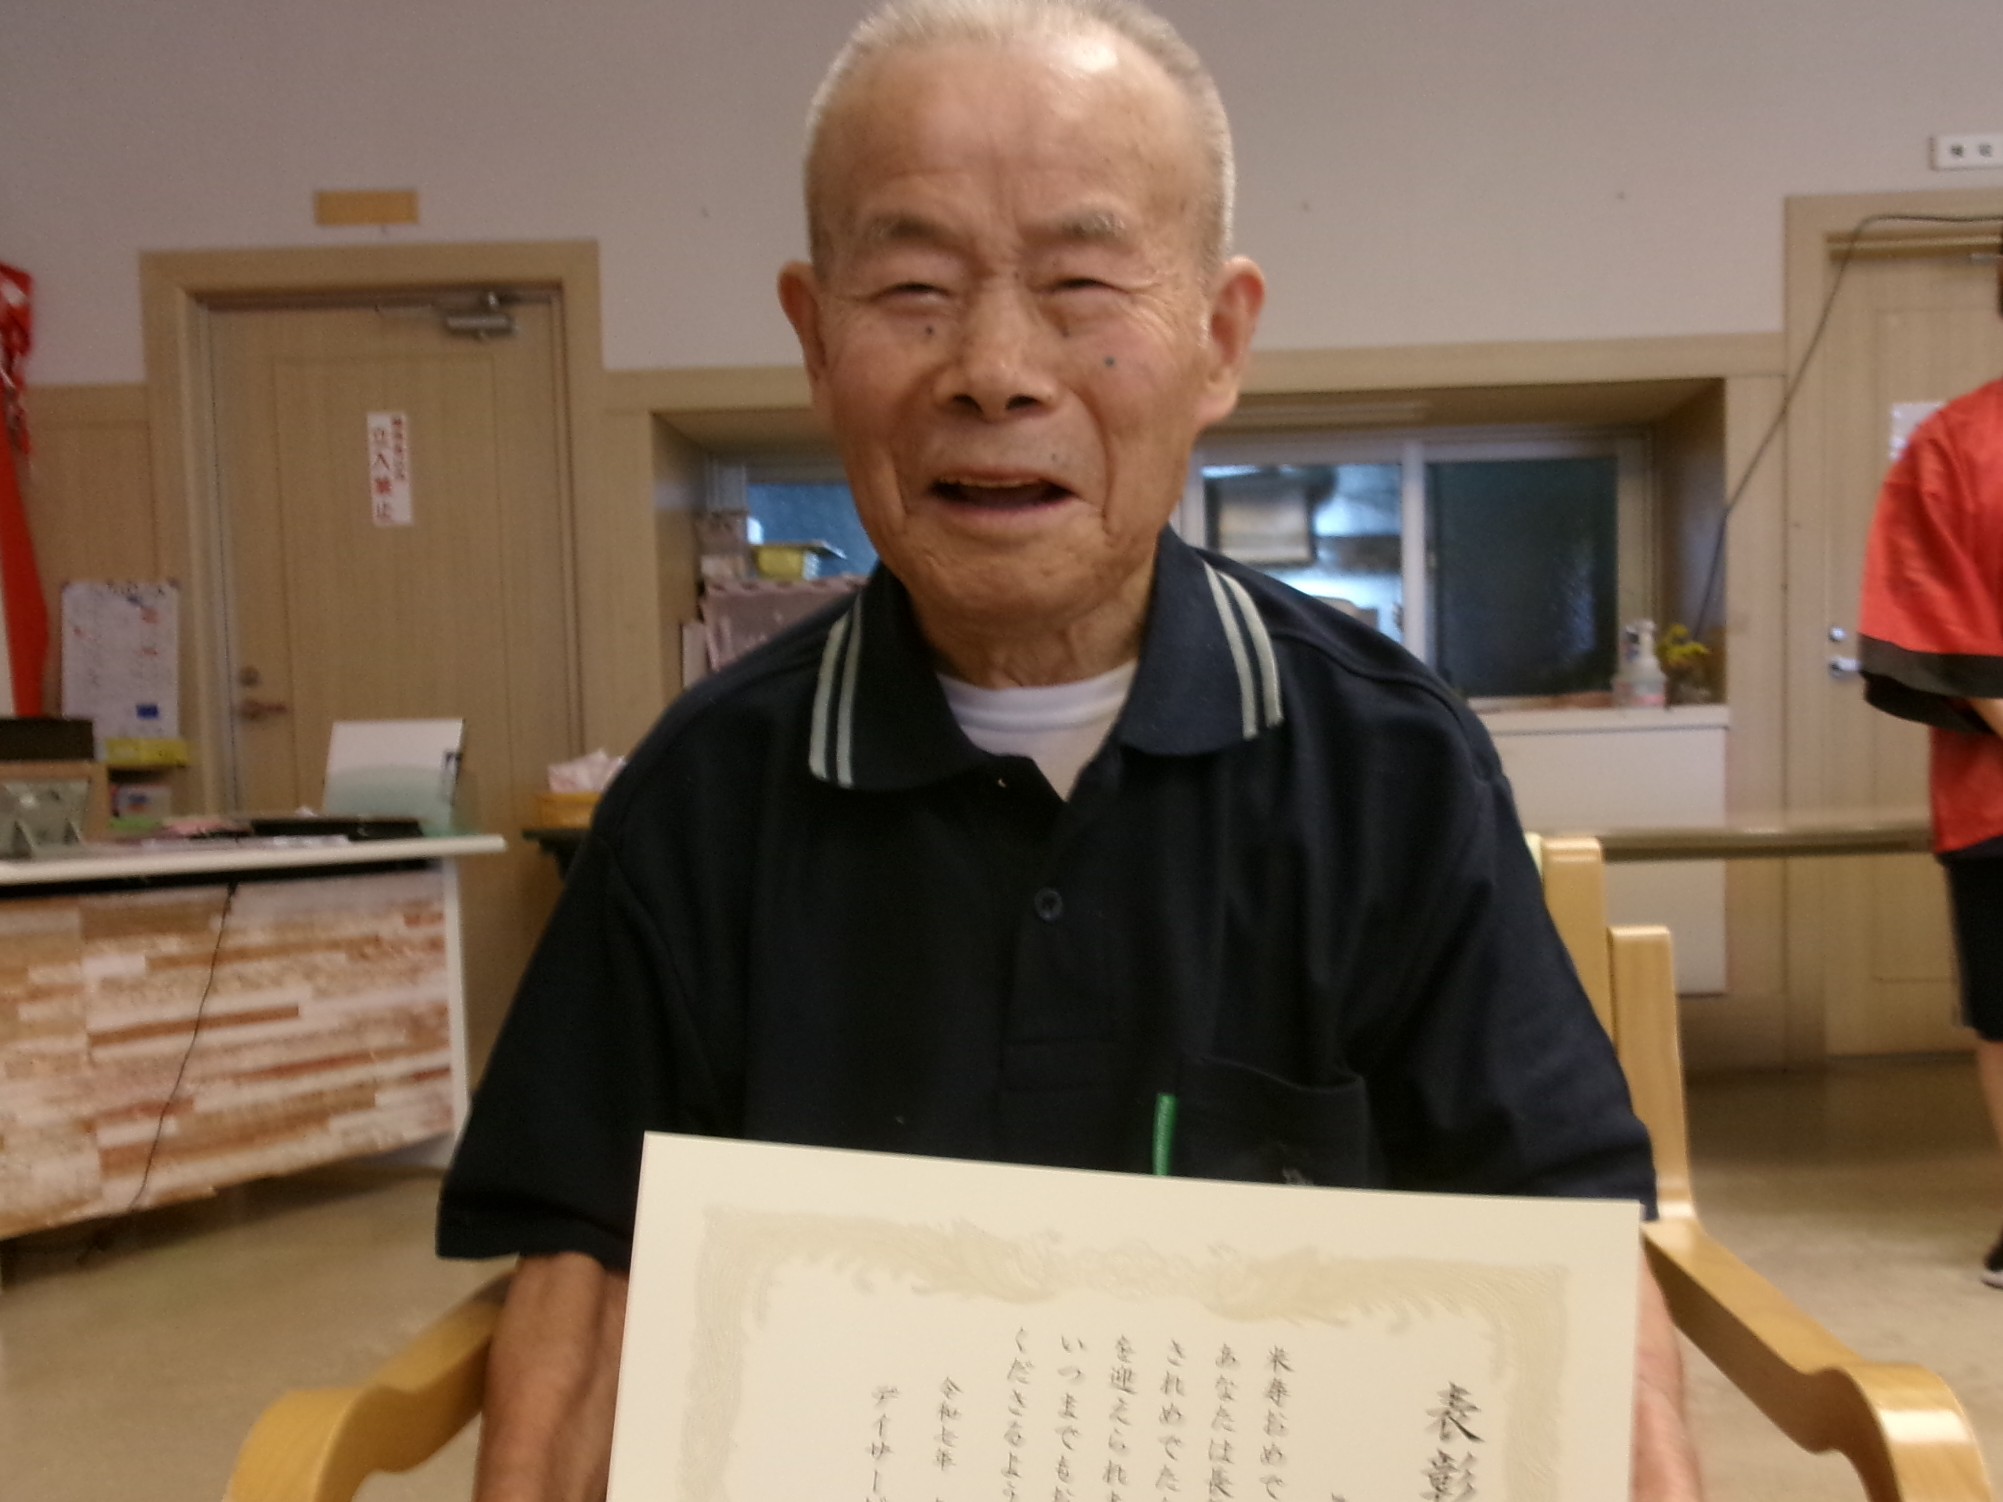 立入禁止
表彰
米寿おめで
あなたは長
されめでた
を迎えられ
いつまでも
くださるよう
令和七年
デイサービ